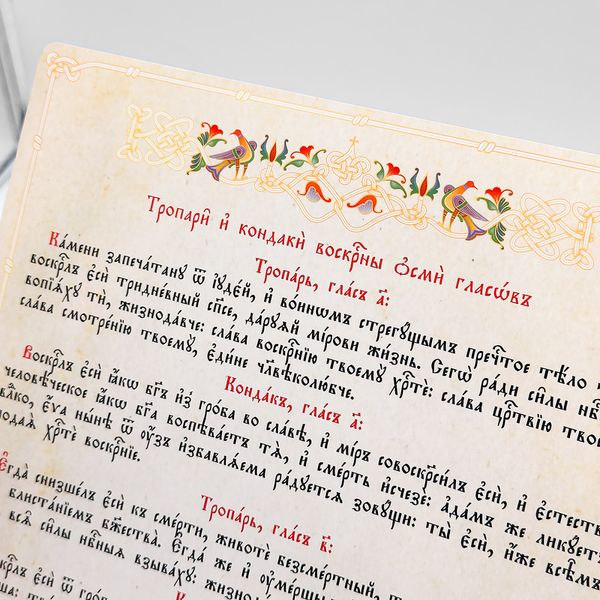 Тропари̑ и҆ кондаки̑ воскрⷭ҇ны ѻ҆сми̑ гласѡ́въ
Тропа́рь, гла́съ а҃:
Ка́мени запеча́тану ѿ і҆ꙋде́й, и҆ во́инѡмъ стрегꙋ́щымъ пречⷭ҇тое тѣ́ло
воскрⷭ҇лъ є҆сѝ тридне́вный сп҃се, да́рꙋѧй мі́рови жи́знь. Сегѡ̀ ра́ди си̑лы нбⷭ҇
вопїѧ́хꙋ тѝ, жизнода́вче: сла́ва воскрⷭ҇нїю твоемꙋ̀ хрⷭ҇тѐ: сла́ва црⷭ҇твїю твое
сла́ва смотре́нїю твоемꙋ̀, є҆ди́не чл҃вѣколю́бче.
Конда́къ, гла́съ а҃:
Воскрⷭ҇лъ є҆сѝ ꙗ҆́кѡ бг҃ъ и҆з̾ гро́ба во сла́вѣ, и҆ мі́ръ совоскрⷭ҇и́лъ є҆сѝ, и҆ є҆стеств
человѣ́ческое ꙗ҆́кѡ бг҃а воспѣва́етъ тѧ̀, и҆ сме́рть и҆счезѐ: а҆да́мъ же ликꙋ́етъ
влⷣко, є҆́ѵа ны́нѣ ѿ ᲂу҆́зъ и҆збавлѧ́ема ра́дꙋетсѧ зовꙋ́щи: ты̀ є҆сѝ, и҆́же всѣ̑мъ
подаѧ̀ хрⷭ҇тѐ воскрⷭ҇нїе.
Тропа́рь, гла́съ в҃:
Є҆гда̀ снизше́лъ є҆сѝ къ сме́рти, животѐ безсме́ртный,
блиста́нїемъ бжⷭ҇тва̀. Є҆гда́ же и҆ ᲂу҆ме́ршыѧ
всѧ̑ си̑лы нбⷭ҇ныѧ взыва́хꙋ: жизно
крⷭ҇лъ є҆сѝ ѿ гро́